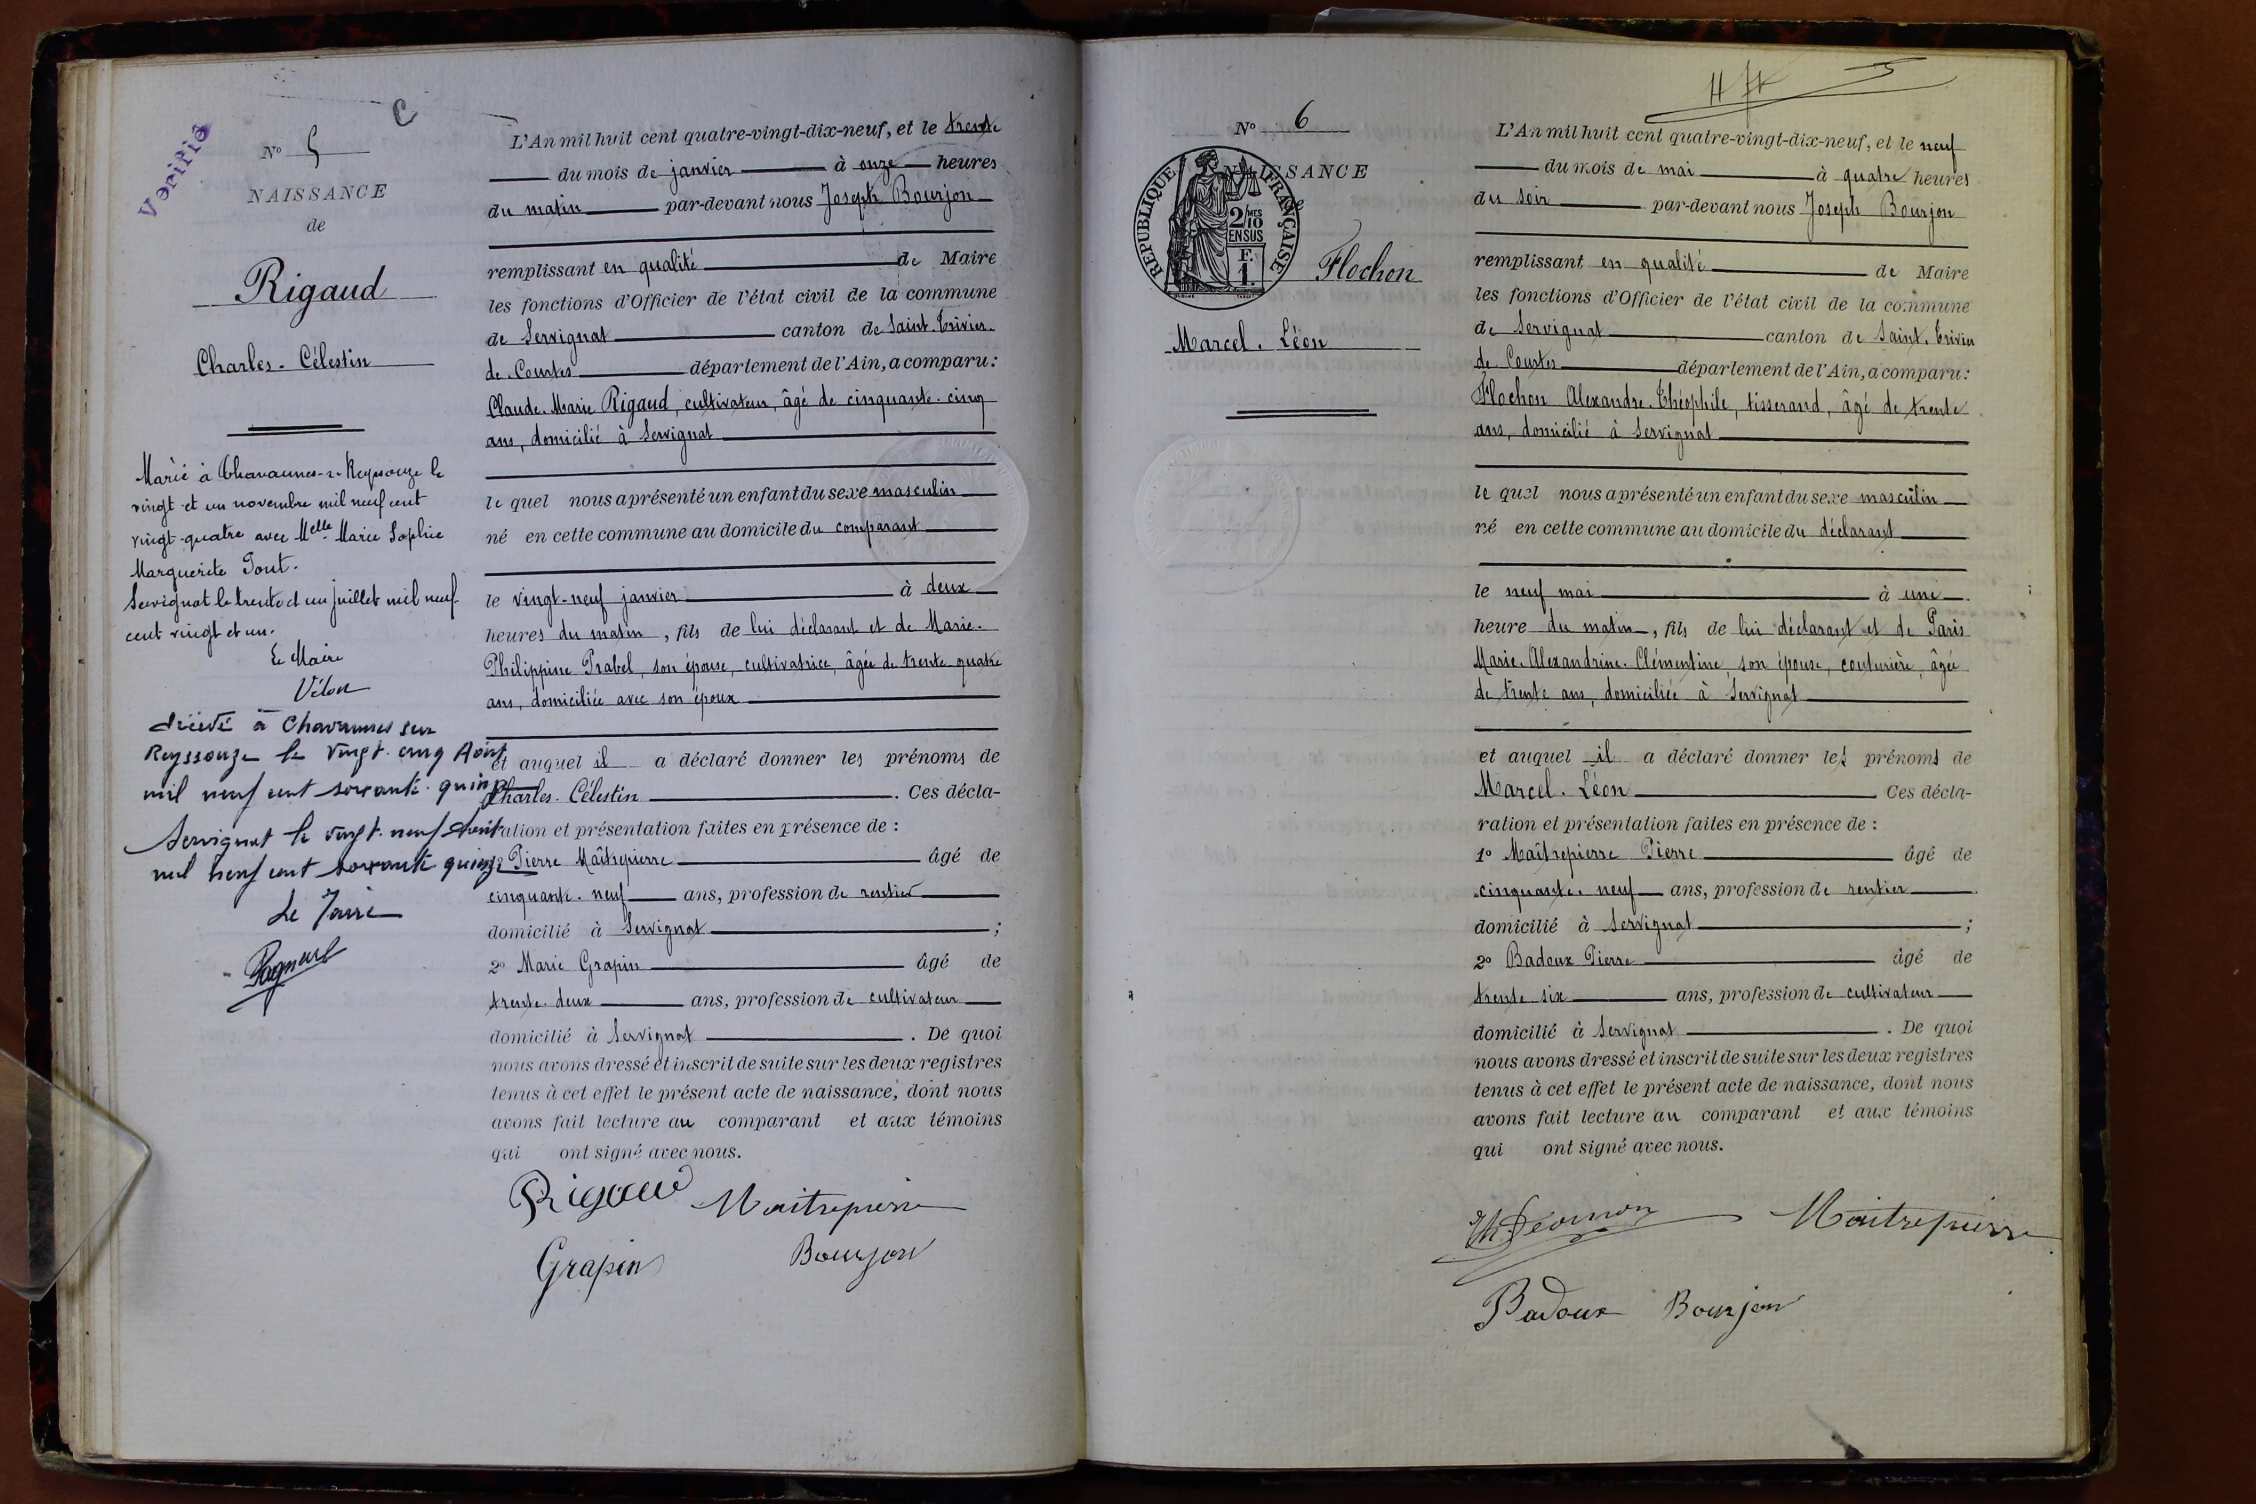 Verifié
C
N° 5
NAISSANCE
de
Rigaud
Charles-Célestin
Marié à Chavannes-s-Reyssouze le
vingt et un novembre mil neuf cent
vingt-quatre avec Melle Marie Sophie
Marguerite Pont.
Servignat le trente et un juillet mil neuf
cent vingt et un.
Le Maire
Vélon
décédé à Chavannes sur
Reyssouze le vingt-cinq Août
mil neuf cent soixante-quinze
Servignat le vingt-neuf Août
mil neuf cent soixante quinze
Le Maire
L'An mil huit cent quatre-vingt-dix-neuf, et le trente
du mois de janvier à onze heures
du matin par-devant nous Joseph Bourjon
remplissant en qualité de Maire
les fonctions d'Officier de l'état civil de la commune
de Servignat canton de Saint-Trivier-
de-Courtes département de l'Ain, a comparu:
Claude-Marie Rigaud, cultivateur, âgé de cinquante-cinq
ans, domicilié à Servignat
le quel nous a présenté un enfant du sexe masculin
né en cette commune au domicile du comparant
le vingt-neuf janvier à deux
heures du matin, fils de lui déclarant et de Marie-
Philippine Prabel, son épouse, cultivatrice, âgée de trente quatre
ans, domiciliée avec son époux
et auquel il a déclaré donner les prénoms de
Charles-Célestin. Ces décla-
ration et présentation faites en présence de :
Pierre Maîtrepierre âgé de
cinquante-neuf ans, profession de rentier
domicilié à Servignat ;
2° Marie Grapin âgé de
trente-deux ans, profession de cultivateur
domicilié à Servignat. De quoi
nous avons dressé et inscrit de suite sur les deux registres
tenus à cet effet le présent acte de naissance, dont nous
avons fait lecture au comparant et aux témoins
qui ont signé avec nous.
Rigaud Maitrepierre
Grapin Bourjon
N° 6
NAISSANCE
de
REPUBLIQUE FRANÇAISE
2/10 MES
EN SUS
F.
1.
Flochon
Marcel-Léon
L'An mil huit cent quatre-vingt-dix-neuf, et le neuf
du mois de mai à quatre heures
du soir par-devant nous Joseph Bourjon
remplissant en qualité de Maire
les fonctions d'Officier de l'état civil de la commune
de Servignat canton de Saint-Trivier
de Courtes département de l'Ain, a comparu:
Flochon Alexandre-Théophile, tisserand, âgé de trente
ans, domicilié à Servignat
le quel nous a présenté un enfant du sexe masculin
né en cette commune au domicile du déclarant
le neuf mai à une
heure du matin, fils de lui déclarant et de Paris
Marie-Alexandrine-Clémentine son épouse, couturière, âgée
de trente ans, domiciliée à Servignat
et auquel il a déclaré donner les prénoms de
Marcel-Léon Ces décla-
ration et présentation faites en présence de :
1° Maîtrepierre Pierre âgé de
cinquante-neuf ans, profession de rentier
domicilié à Servignat ;
2° Badoux Pierre âgé de
trente six ans, profession de cultivateur
domicilié à Servignat. De quoi
nous avons dressé et inscrit de suite sur les deux registres
tenus à cet effet le présent acte de naissance, dont nous
avons fait lecture au comparant et aux témoins
qui ont signé avec nous.
Maitrepierre
Badoux Bourjon